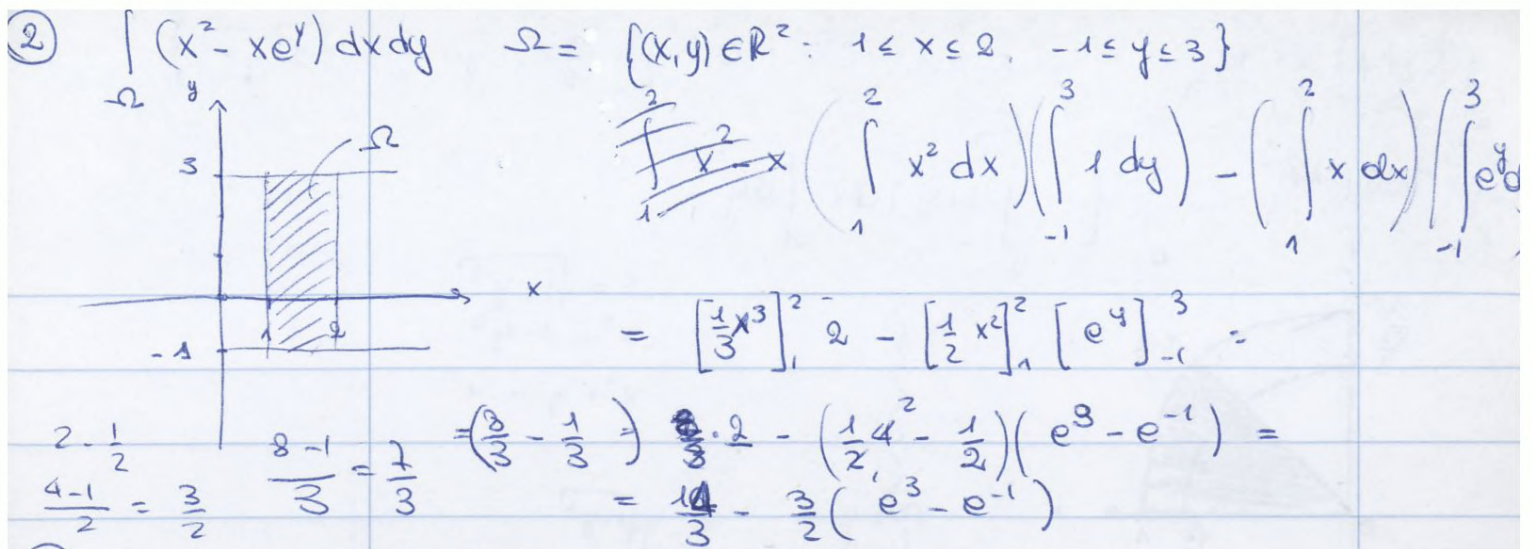 ② ∫_Ω (x² - xe^y) dxdy Ω = {(x,y) ∈ R² : 1 ≤ x ≤ 2, -1 ≤ y ≤ 3}
y
3 Ω
x
1 2
-1
(∫_1^2 x² dx)(∫_{-1}^3 1 dy) - (∫_1^2 x dx)(∫_{-1}^3 e^y d
= [1/3 x³]_1^2 2 - [1/2 x²]_1^2 [e^y]_{-1}^3 =
= (8/3 - 1/3) · 2 - (1/2 4² - 1/2)(e³ - e^{-1}) =
= 14/3 - 3/2 (e³ - e^{-1})
2 - 1/2
(4-1)/2 = 3/2
(8-1)/3 = 7/3